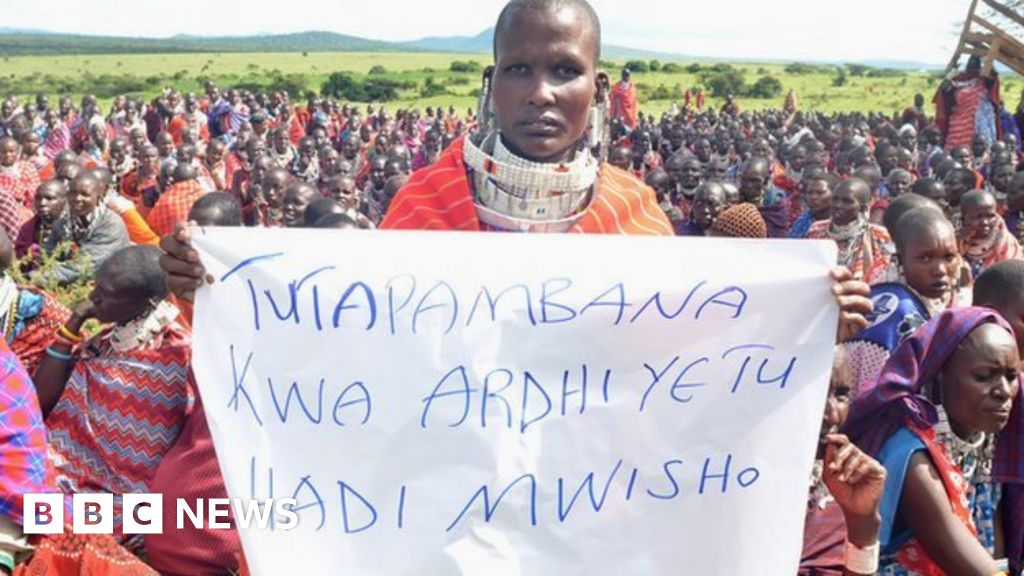 TUTAPAMBANA
KWA ARDHI YETU
HADI MWISHO
BBC NEWS